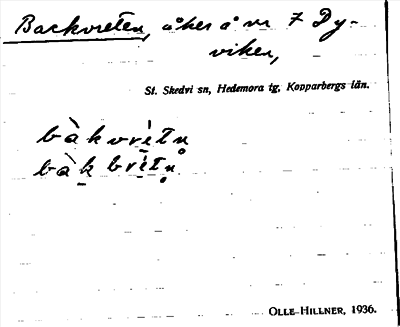 Backvreten, åker å nr 7 Dy-
viken,
St. Skedvi sn, Hedemora tg, Kopparbergs län.
bàkvrètn̥
bàk brètn̥
OLLE HILLNER, 1936.